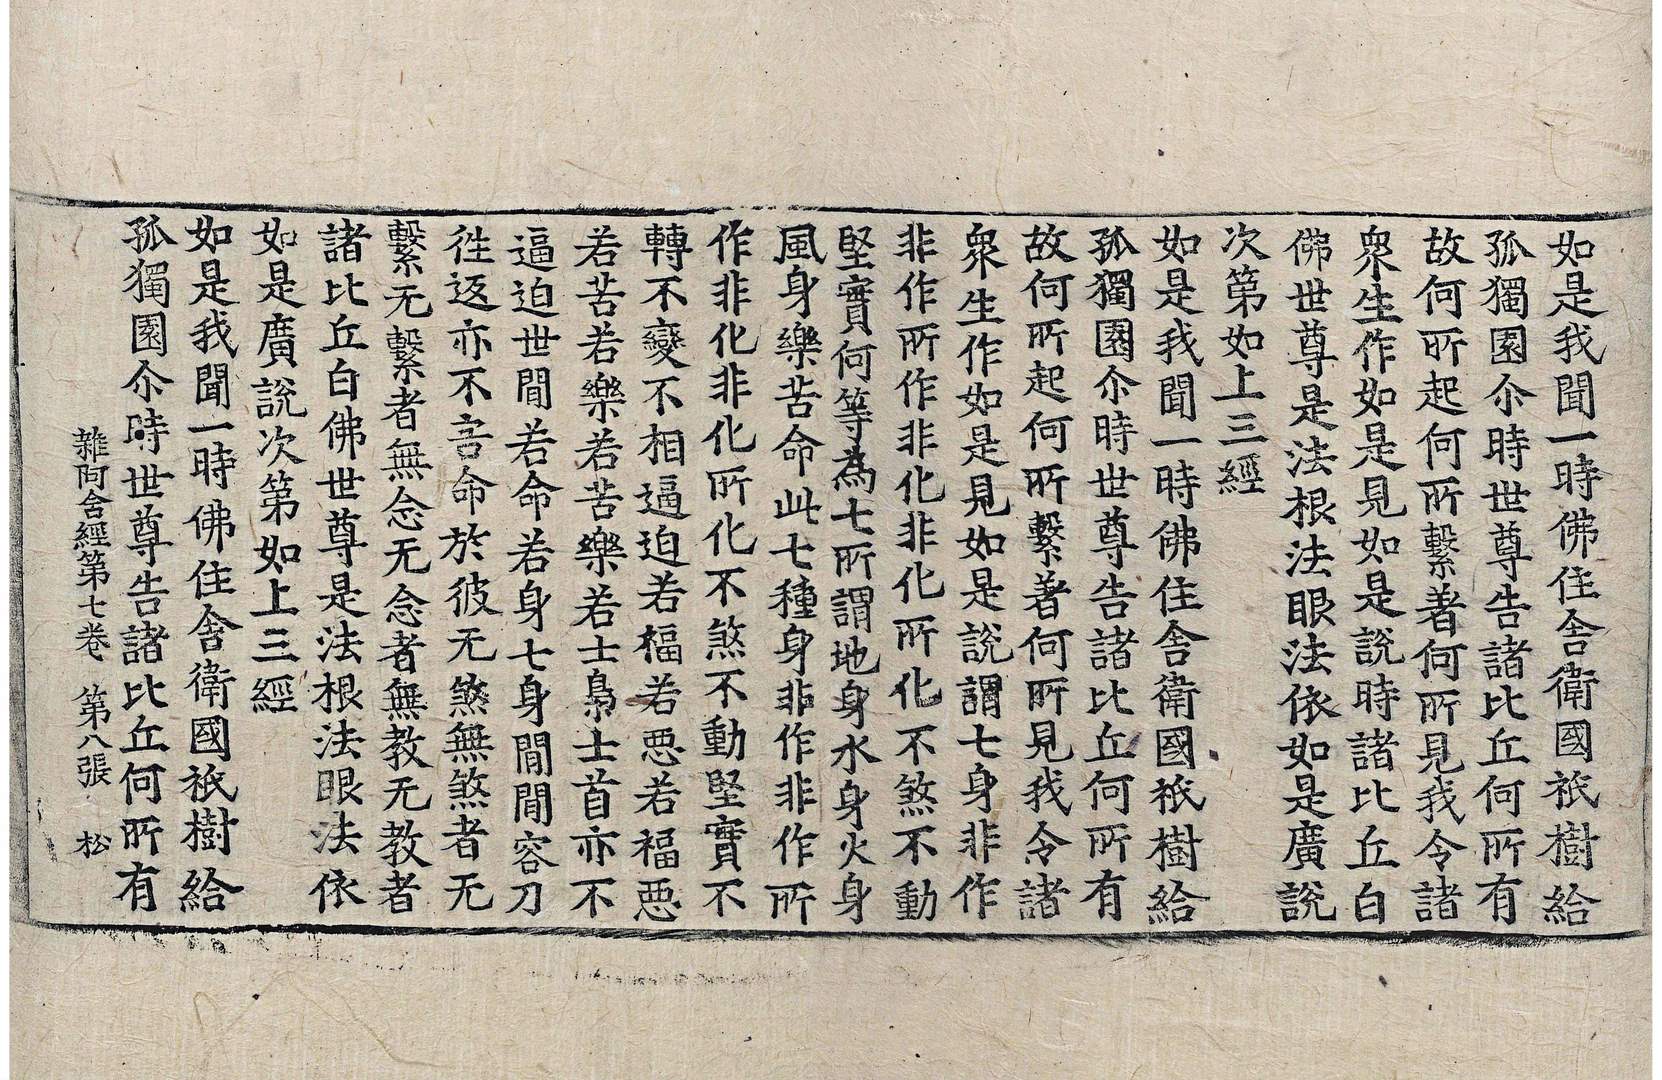 如是我聞一時佛住舍衛國祇樹給
孤獨園尒時世尊告諸比丘何所有
故何所起何所繫著何所見我令諸
衆生作如是見如是說時諸比丘白
佛世尊是法根法眼法依如是廣說
次第如上三經
如是我聞一時佛住舍衛國祇樹給
孤獨園尒時世尊告諸比丘何所有
故何所起何所繫著何所見我令諸
衆生作如是見如是說謂七身非作
非作所作非化非化所化不煞不動
堅實何等為七所謂地身水身火身
風身樂苦命此七種身非作非作所
作非化非化所化不煞不動堅實不
轉不變不相逼迫若福若惡若福惡
若苦若樂若苦樂若士梟士首亦不
逼迫世間若命若身七身間間容刀
徃返亦不害命於彼无煞無煞者无
繫无繫者無念无念者無教无教者
諸比丘白佛世尊是法根法眼法依
如是廣說次第如上三經
如是我聞一時佛住舍衛國祇樹給
孤獨園尒時世尊告諸比丘何所有
雜阿含經第七卷 第八張 松